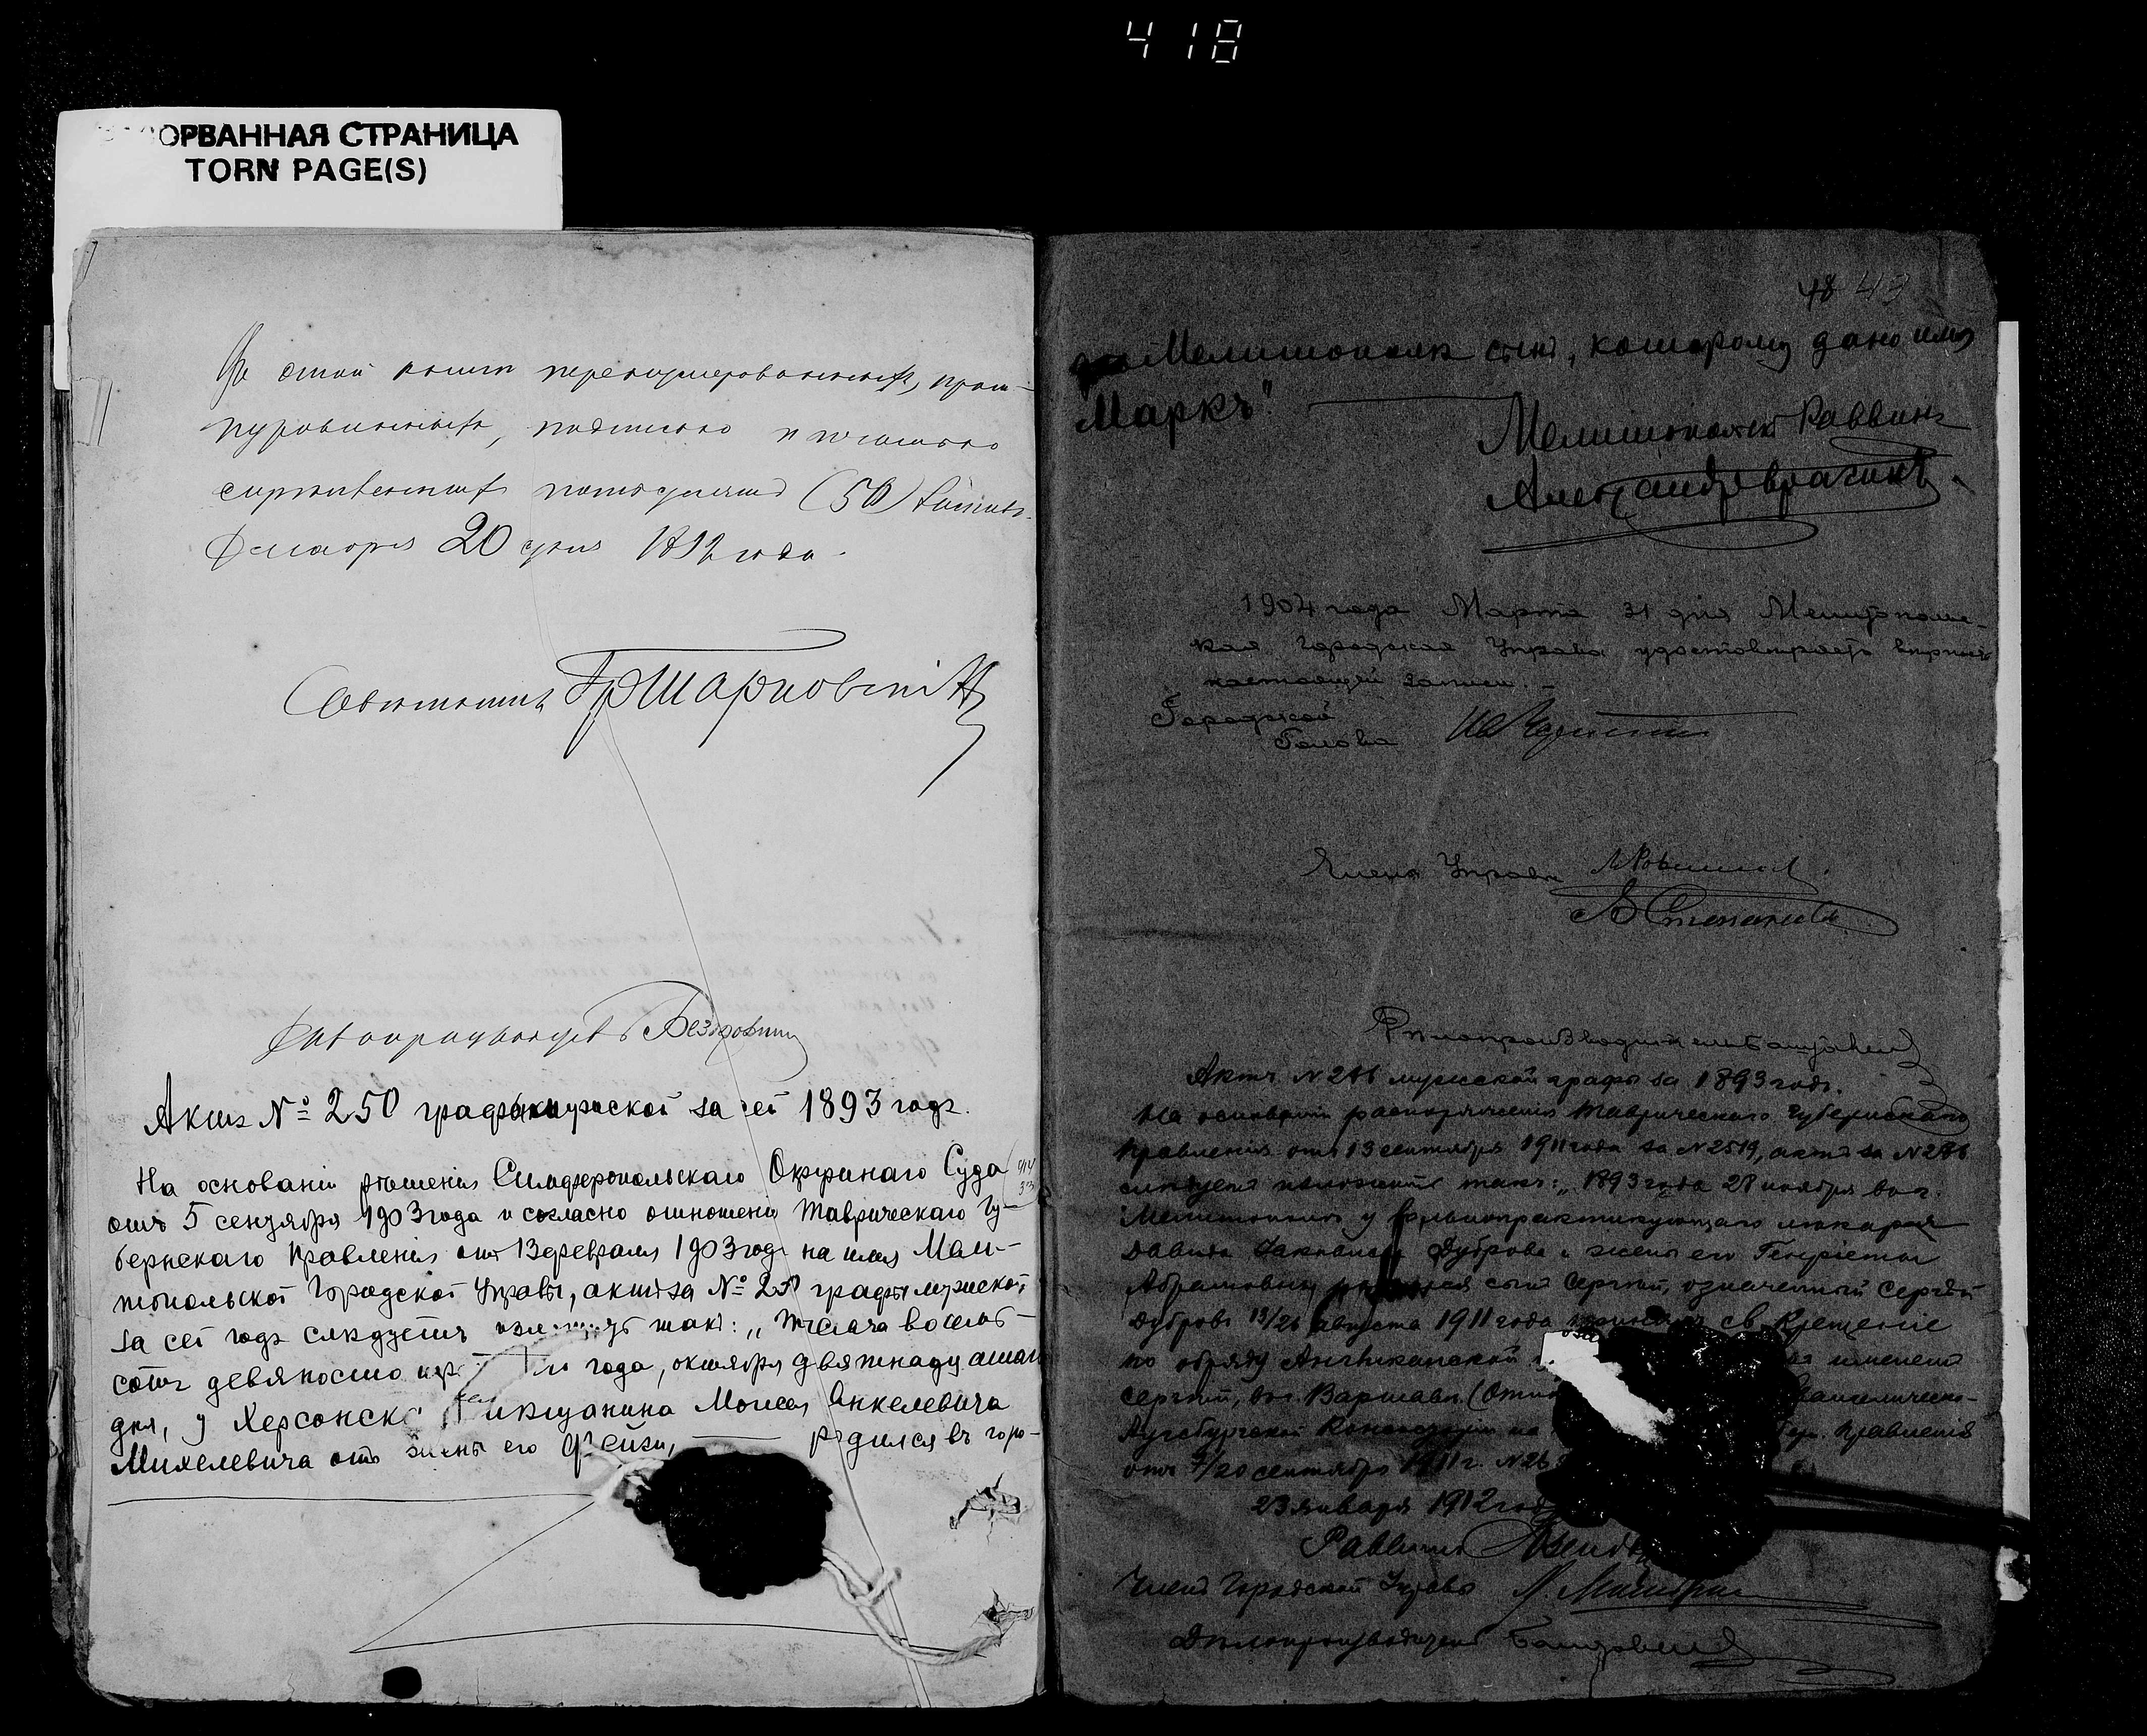 418
ОРВАННАЯ СТРАНИЦА
TORN PAGE(S)
Въ этой книгѣ перенумерованныхъ, прош-
нурованныхъ, подписью и печатью
скрѣпленныхъ пятьдесятъ (50) листовъ.
Декабря 20 дня 1892 года.
Совѣтникъ
Дѣлопроизводитель
Актъ № 250 графы мужской за сей 1893 годъ.
На основаніи рѣшенія Симферопольскаго Окружнаго Суда
отъ 5 сентября 1903 года и согласно отношенія Таврическаго Гу-
бернскаго Правленія отъ 13 февраля 1903 года на имя Мели-
топольской Городской Управы, актъ за № 250 графы мужской
за сей годъ слѣдуетъ изложить такъ: „Тысяча восемь-
сотъ девяносто года, октября двѣнадцатаго
дня, у Херсонска мѣщанина Моисея Анкелевича
Михелевича отъ жены его Фейги, родился въ горо-
48 43
дѣ Мелитополѣ сынъ, которому дано имя
"Маркъ".
Мелитопольскій Раввинъ
1904 года Марта 31 дня Мелитополь-
ская Городская Управа удостовѣряетъ вѣрность
настоящей записи. –
Городской
Голова
Члены Управы
В Степановъ
Дѣлопроизводитель
Актъ N 286 мужской графы за 1893 годъ.
На основаніи распоряженія Таврическаго Губернскаго
Правленія отъ 13 сентября 1911 года за N 2519, актъ за N 286
слѣдуетъ изложить такъ: „1893 года 28 ноября въ г.
Мелитополѣ у вольнопрактикующаго лекаря
Давида Дуброва и жены его Генріеты
Абрамовны родился сынъ Сергѣй, означенный Сергѣй
Дубровъ 13/26 августа 1911 года св. Крещеніе
по обряду Англиканской именемъ
Сергѣй, въ г. Варшавѣ (Отно Евангелическо-
Аугсбургской Консисторіи на Губ. Правленія
отъ 7/20 сентября 1911 г. N 26
23 января 1912 года
Раввинъ
Членъ Городской Управы
Дѣлопроизводитель